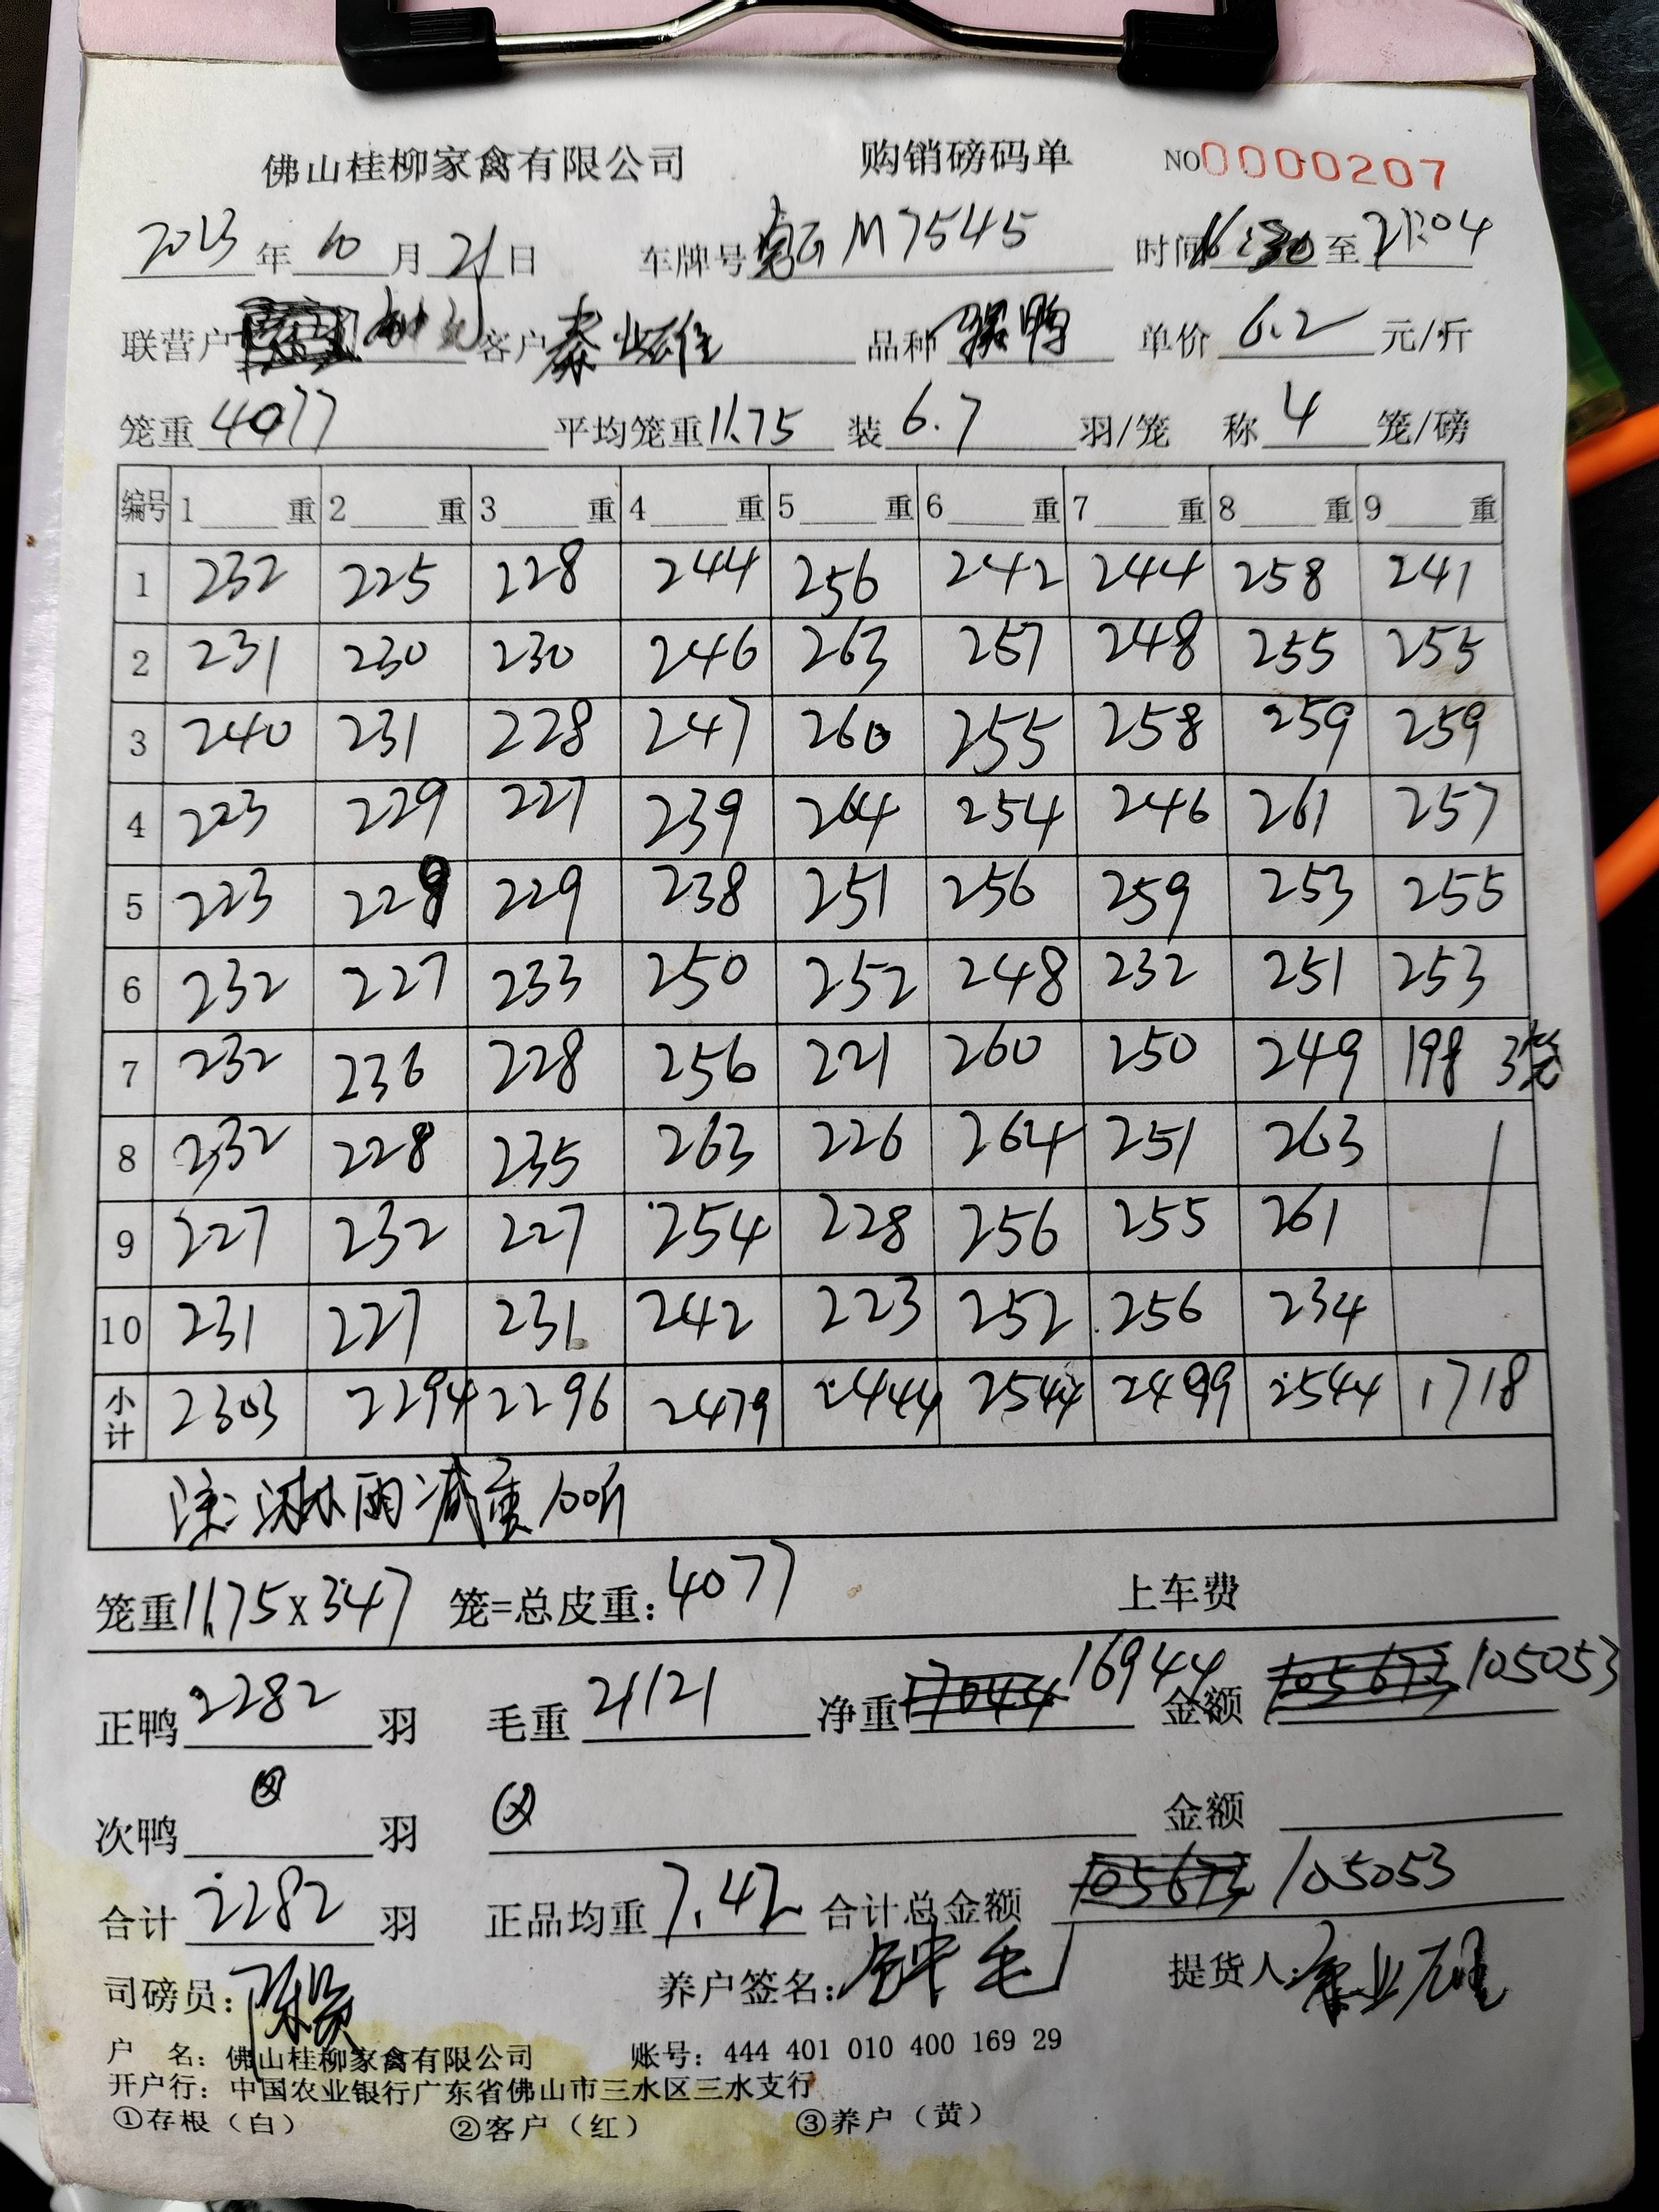 佛山桂柳家禽有限公司 购销磅码单 NO0000207
2023年10月21日 车牌号 M7545 时间16:30至21:04
联营户 客户秦业雄 品种 鸭 单价6.2元/斤
笼重4077 平均笼重11.75 装6.7羽/笼 称4笼/磅
编号 1重 2重 3重 4重 5重 6重 7重 8重 9重
1 232 225 228 244 256 242 244 258 241
2 231 230 230 246 263 257 248 255 255
3 240 231 228 247 260 255 258 259 259
4 223 229 227 239 264 254 246 261 257
5 223 229 229 238 251 256 259 253 255
6 232 227 233 250 252 248 232 251 253
7 232 236 228 256 221 260 250 249 198 3笼
8 232 228 235 263 226 264 251 263
9 227 232 227 254 228 256 255 261
10 231 227 231 242 223 252 256 234
小计 2303 2294 2296 2479 2444 2544 2499 2544 1718
注:淋雨减重100斤
笼重11.75x347 笼=总皮重:4077 上车费
正鸭2282羽 毛重21121 净重17044 16944 金额105673 105053
次鸭⊗羽 ⊗ 金额
合计2282羽 正品均重7.42 合计总金额105673 105053
司磅员: 养户签名:钟毛 提货人:秦业雄
户 名:佛山桂柳家禽有限公司 账号:444 401 010 400 169 29
开户行:中国农业银行广东省佛山市三水区三水支行
①存根(白) ②客户(红) ③养户(黄)